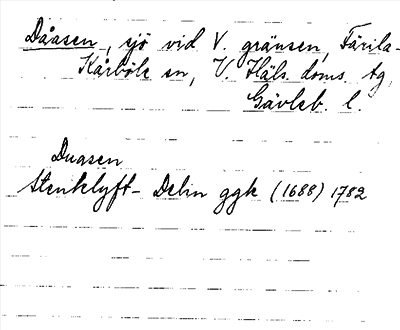 Dåasen, sjö vid V. gränsen, Färila-
Kårböle sn, V. Häls. doms. tg,
Gävleb. l.
Duasen
Stenklyft- Delin ggk (1688) 1782